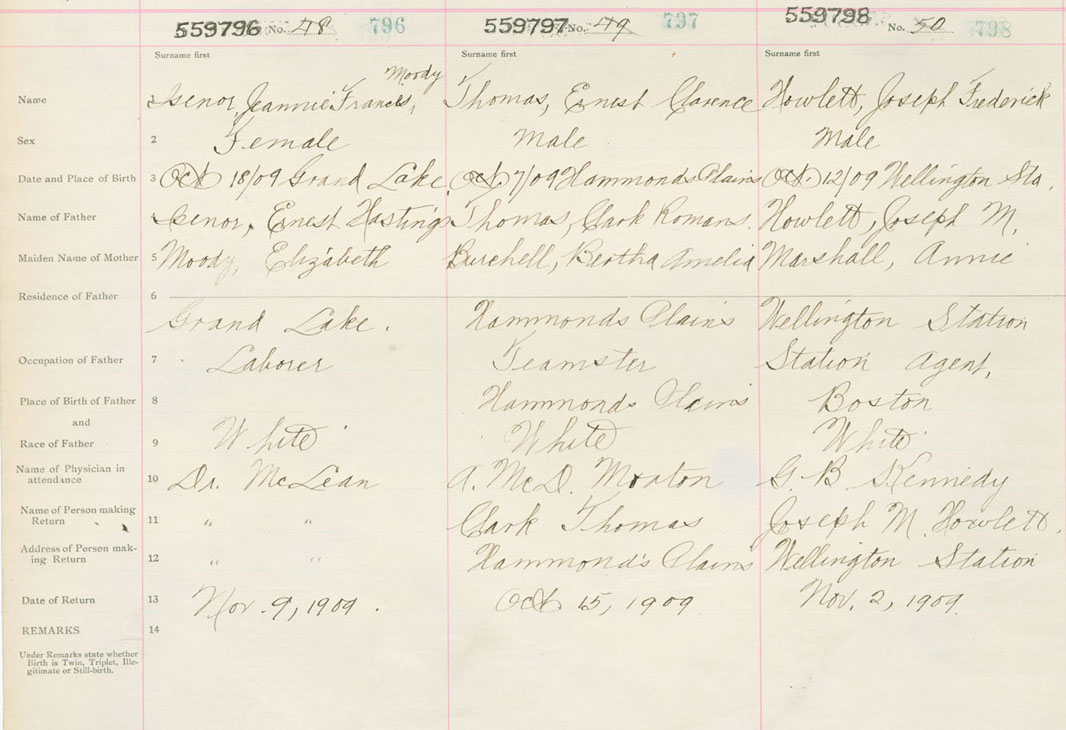 559796 No. 48 796 559797 No. 49 797 559798 No. 50 798
Surname first Surname first Surname first
Moody
Name 1 Isenor, Jeannie Francis, Thomas, Ernest Clarence Howlett, Joseph Frederick
Sex 2 Female Male Male
Date and Place of Birth 3 Oct 18/09 Grand Lake Oct. 7/09 Hammonds Plains Oct. 12/09 Wellington Sta.
Name of Father 4 Isenor, Ernest Hastings Thomas, Clark Romans. Howlett, Joseph M.
Maiden Name of Mother 5 Moody, Elizabeth Burchell, Bertha Amelia Marshall, Annie
Residence of Father 6
Grand Lake. Hammonds Plains Wellington Station
Occupation of Father 7 Laborer Teamster Station Agent,
Place of Birth of Father 8 Hammonds Plains Boston
and
Race of Father 9 White White White
Name of Physician in
attendance 10 Dr. McLean A. McD. Morton G. B. Kennedy
Name of Person making
Return 11 " " Clark Thomas Joseph M. Howlett.
Address of Person mak-
ing Return 12 " " Hammond's Plains Wellington Station
Date of Return 13 Nov. 9, 1909. Oct 15, 1909 Nov. 2, 1909.
REMARKS 14
Under Remarks state whether
Birth is Twin, Triplet, Ille-
gitimate or Still-birth.